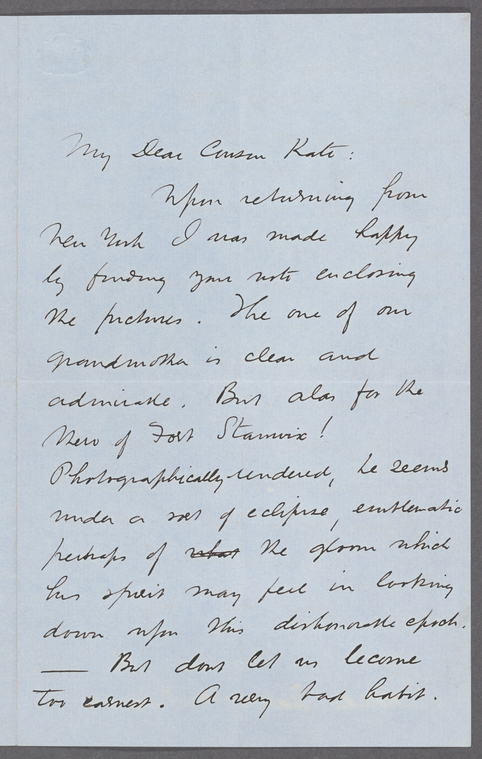 My Dear Cousin Kate:
Upon returning from
New York I was made happy
by finding your note enclosing
the pictures. The one of our
grandmother is clear and
admirable. But alas for the
Hero of Fort Stanwix!
Photographically rendered, he seems
under a sort of eclipse, emblematic
perhaps of what the gloom which
his spirit may feel in looking
down upon this dishonorable epoch.
— But dont let us become
too earnest. A very bad habit.